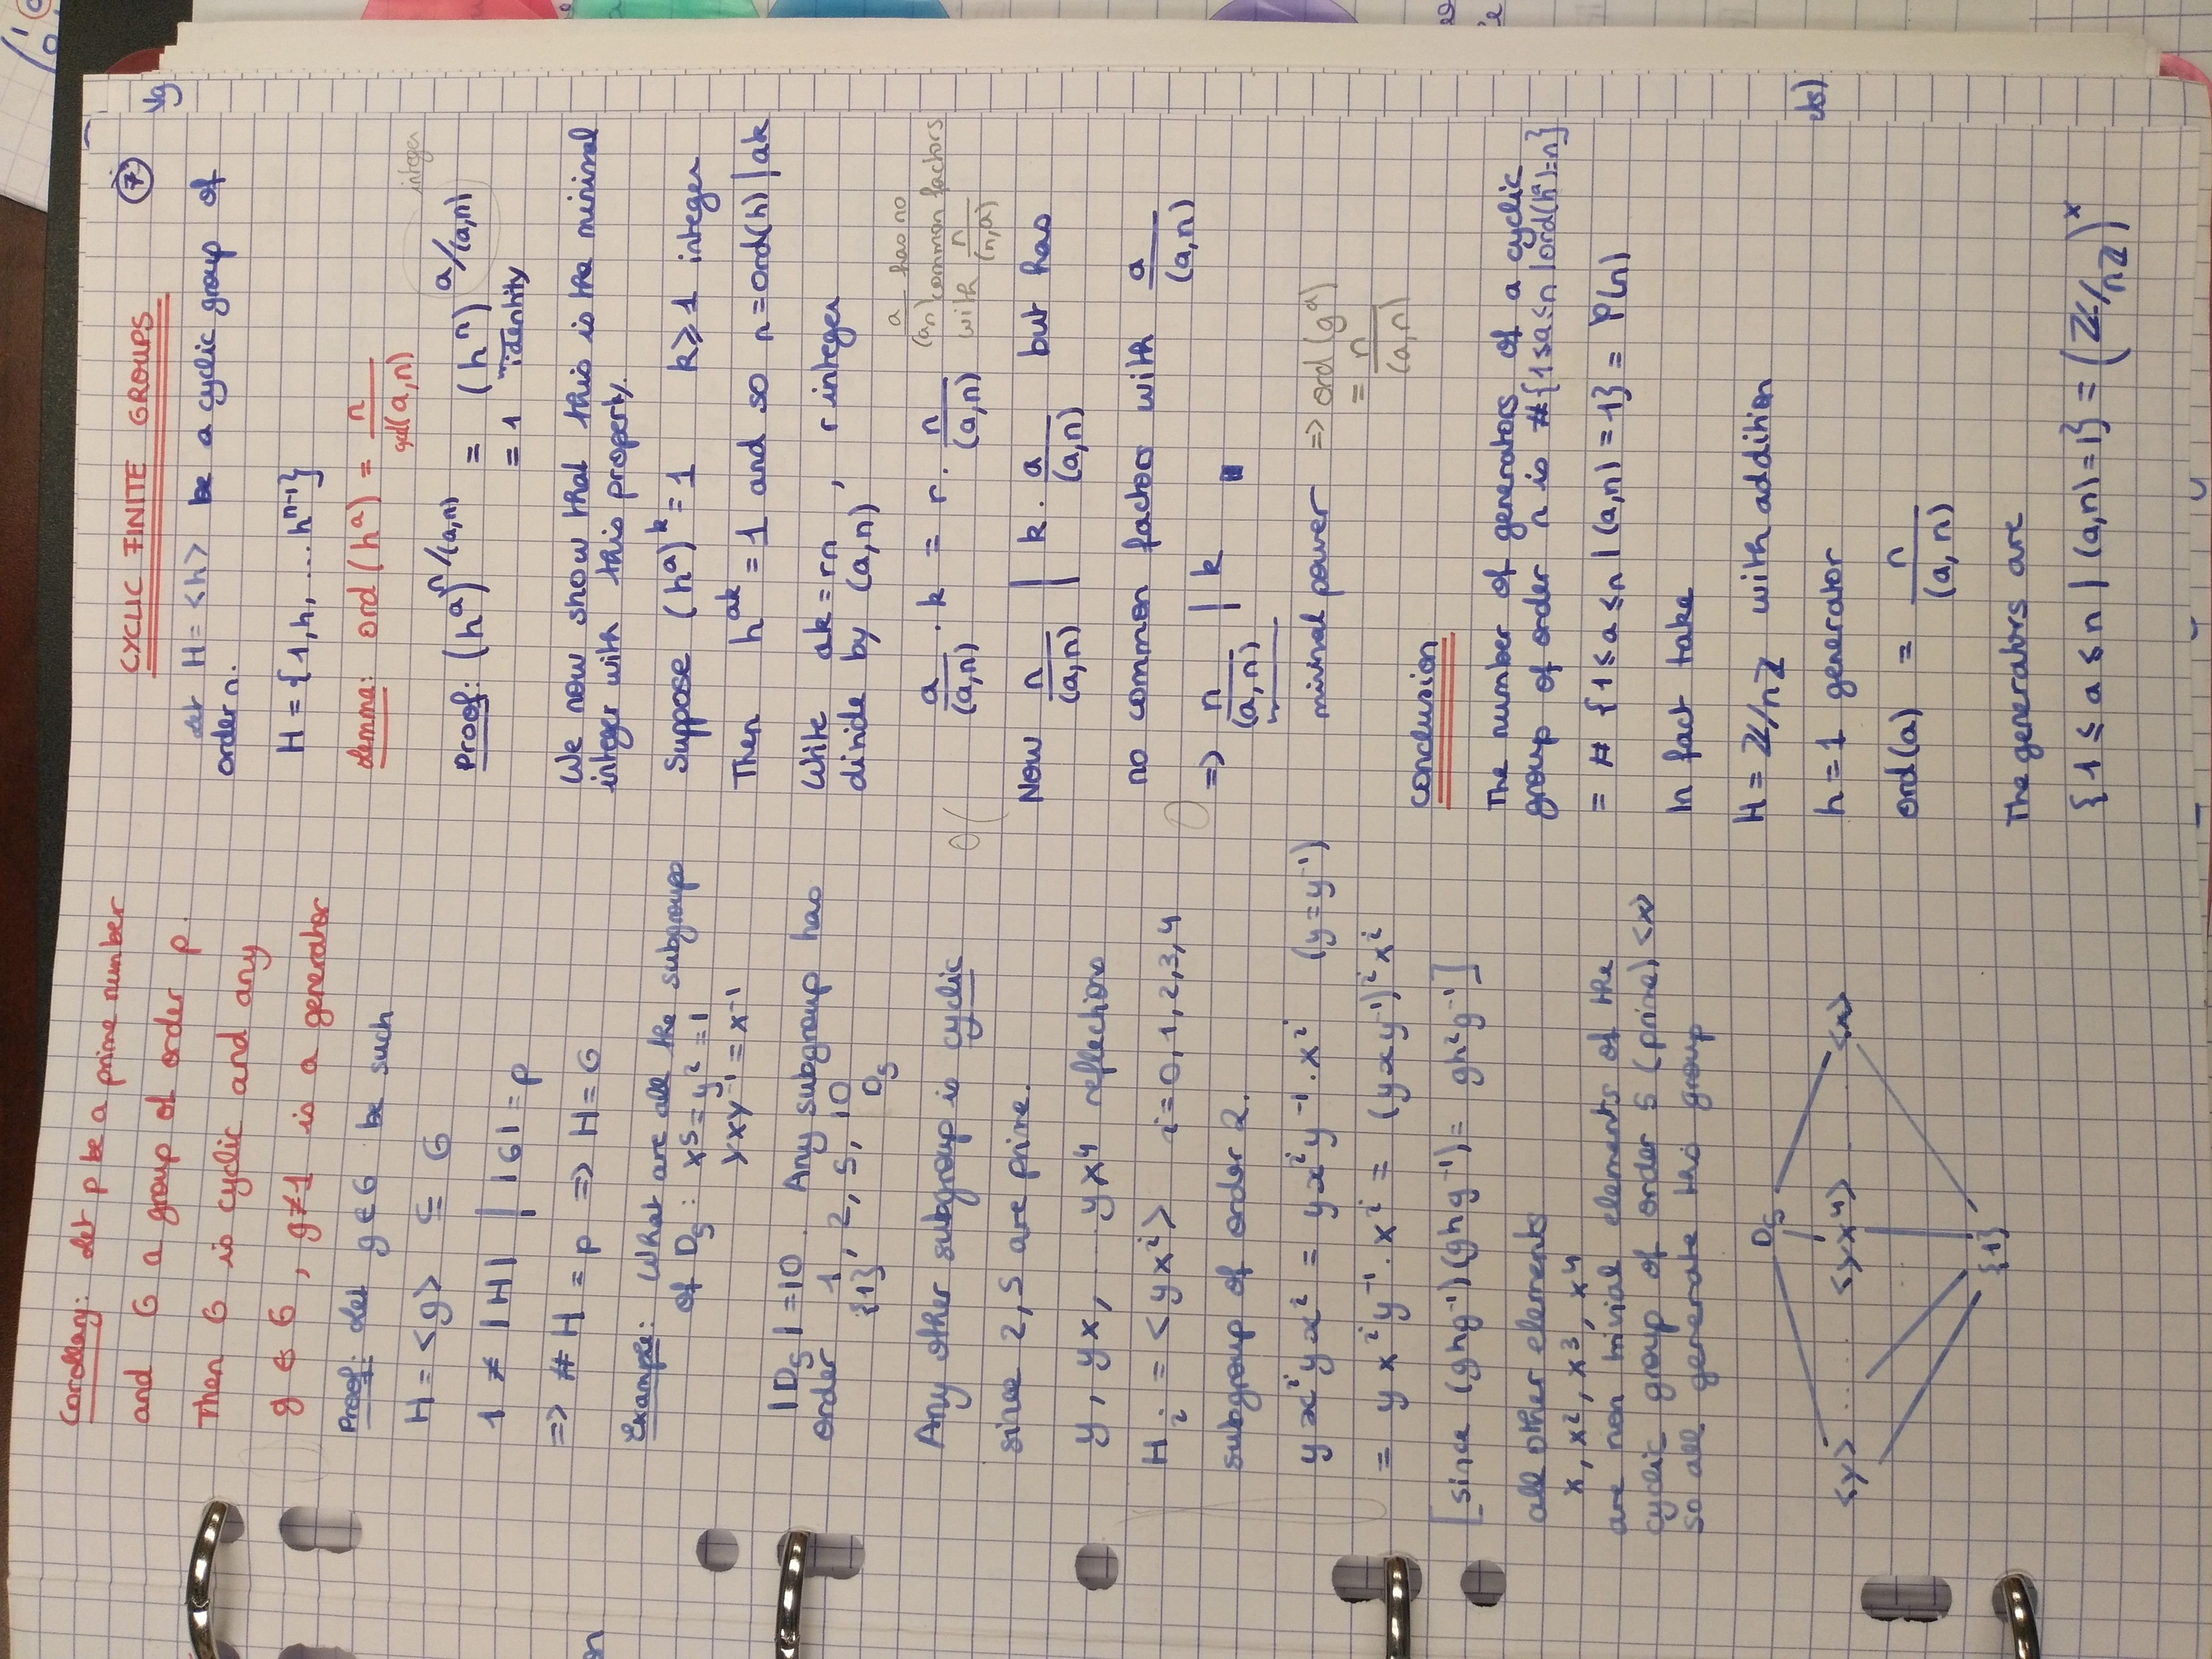 Corollary: Let p be a prime number
and G a group of order p.
Then G is cyclic and any
g ∈ G, g≠1 is a generator
Proof: Let g ∈ G be such
H = <g> ⊆ G
1 ≠ |H| | |G| = p
=> #H = p => H = G
Example: What are all the subgroups
of D₅: x⁵ = y² = 1
yxy⁻¹ = x⁻¹
|D₅| = 10. Any subgroup has
order 1, 2, 5, 10
{1} D₅
Any other subgroup is cyclic
since 2, 5 are prime.
y, yx, ... yx⁴ reflections
Hᵢ := <yxⁱ> i = 0, 1, 2, 3, 4
subgroup of order 2.
yxⁱyxⁱ = yxⁱy⁻¹.xⁱ (y = y⁻¹)
= yxⁱy⁻¹.xⁱ = (yxy⁻¹)ⁱxⁱ
[since (ghg⁻¹)(ghg⁻¹) = gh²g⁻¹]
all other elements
x, x², x³, x⁴
are non trivial elements of the
cyclic group of order 5 (prime) <x>
so all generate this group
D₅
<y> ... <yx⁴> <x>
{1}
⑦
CYCLIC FINITE GROUPS
Let H = <h> be a cyclic group of
order n.
H = {1, h, ... hⁿ⁻¹}
Lemma: ord(hᵃ) = n / gcd(a,n)
integer
Proof: (hᵃ)^n/(a,n) = (hⁿ)^a/(a,n)
= 1 identity
We now show that this is the minimal
integer with this property.
Suppose (hᵃ)ᵏ = 1 k ≥ 1 integer
Then hᵃᵏ = 1 and so n = ord(h) | ak
Write ak = rn, r integer
divide by (a,n)
a/(a,n) . k = r . n/(a,n)
a/(a,n) has no
common factors
with n/(n,a)
Now n/(a,n) | k . a/(a,n) but has
no common factors with a/(a,n)
=> n/(a,n) | k ■
minimal power => ord(gᵃ)
= n/(a,n)
Conclusion
The number of generators of a cyclic
group of order n is #{1≤a≤n | ord(hᵃ)=n}
= #{1≤a≤n | (a,n) = 1} = φ(n)
In fact take
H = Z/nZ with addition
h = 1 generator
ord(a) = n/(a,n)
The generators are
{1 ≤ a ≤ n | (a,n) = 1} = (Z/nZ)ˣ